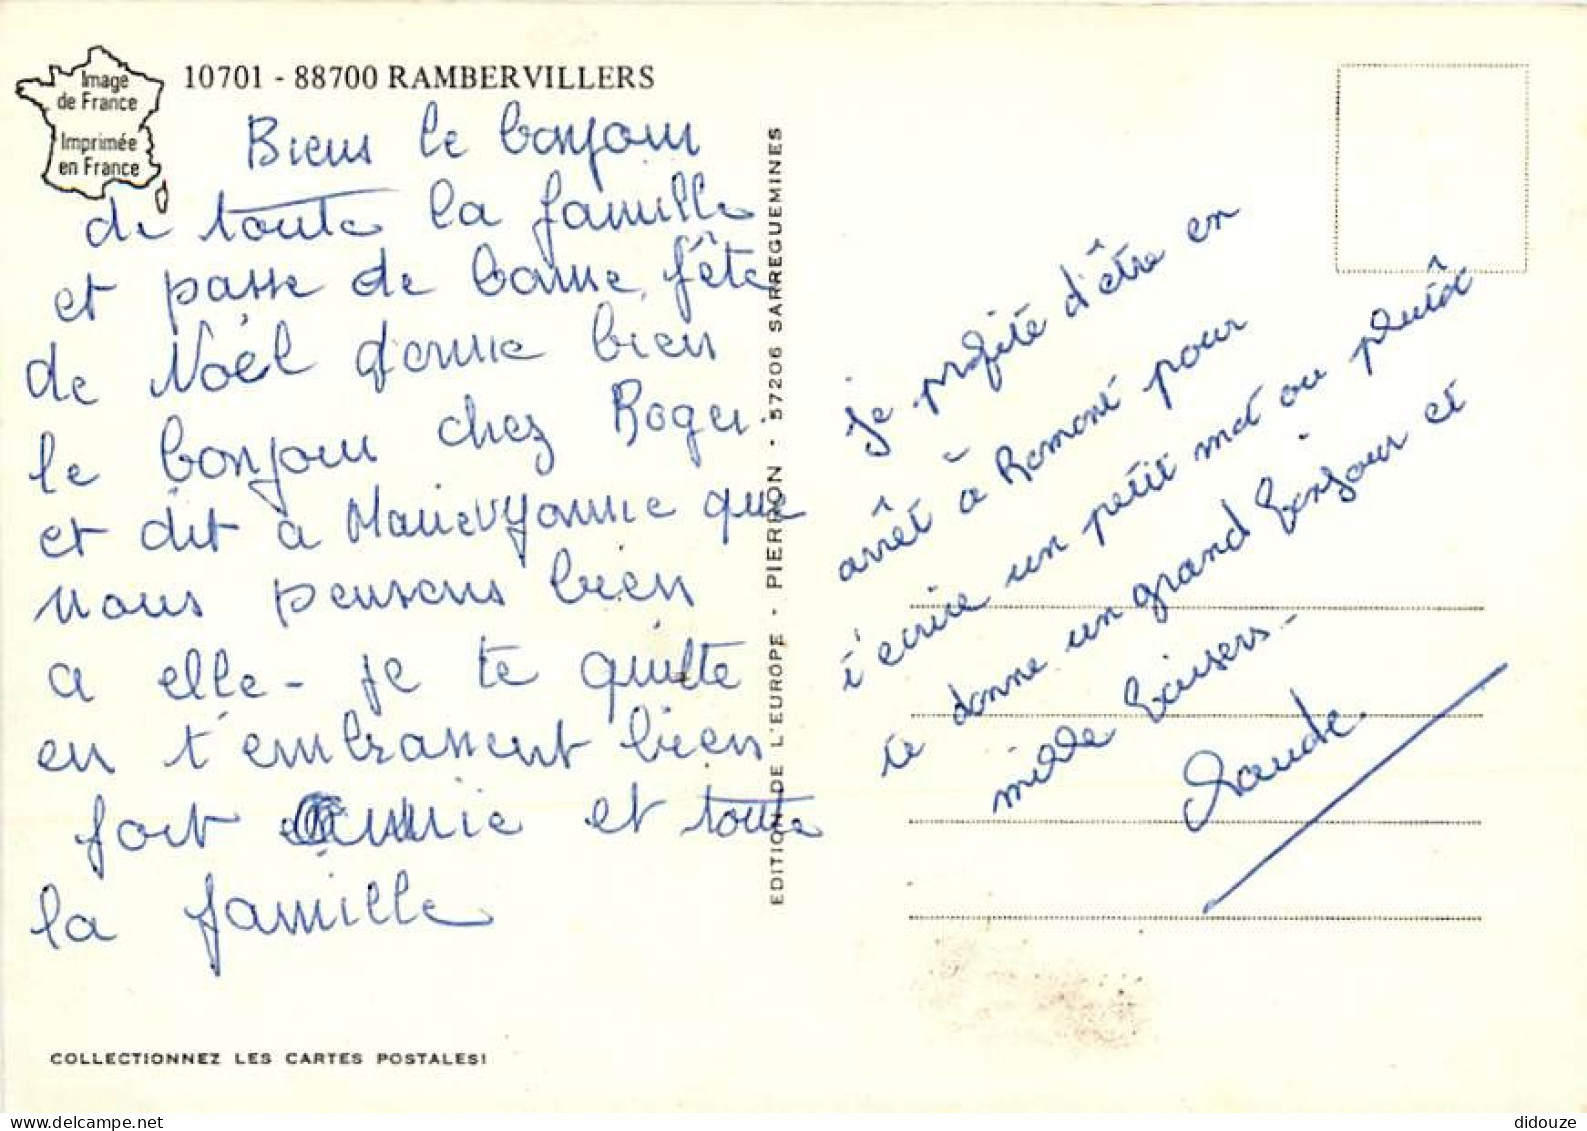 Image
de France
Imprimée
en France
10701 - 88700 RAMBERVILLERS
Biens le bonjour
de toute la famille
et passe de bonne fête
de Noël donne bien
le bonjour chez Roger
et dit a Marie Yonnie que
nous pensons bien
a elle - je te quitte
en t'embrassent bien
fort et toute
la famille
COLLECTIONNEZ LES CARTES POSTALES!
EDITION DE L'EUROPE - PIERRON - 57206 SARREGUEMINES
Je profite d'être en
arrêt à Romont pour
t'ecrire un petit mot ou plutôt
te donne un grand bonjour et
mille baisers -
Claude.
didouze